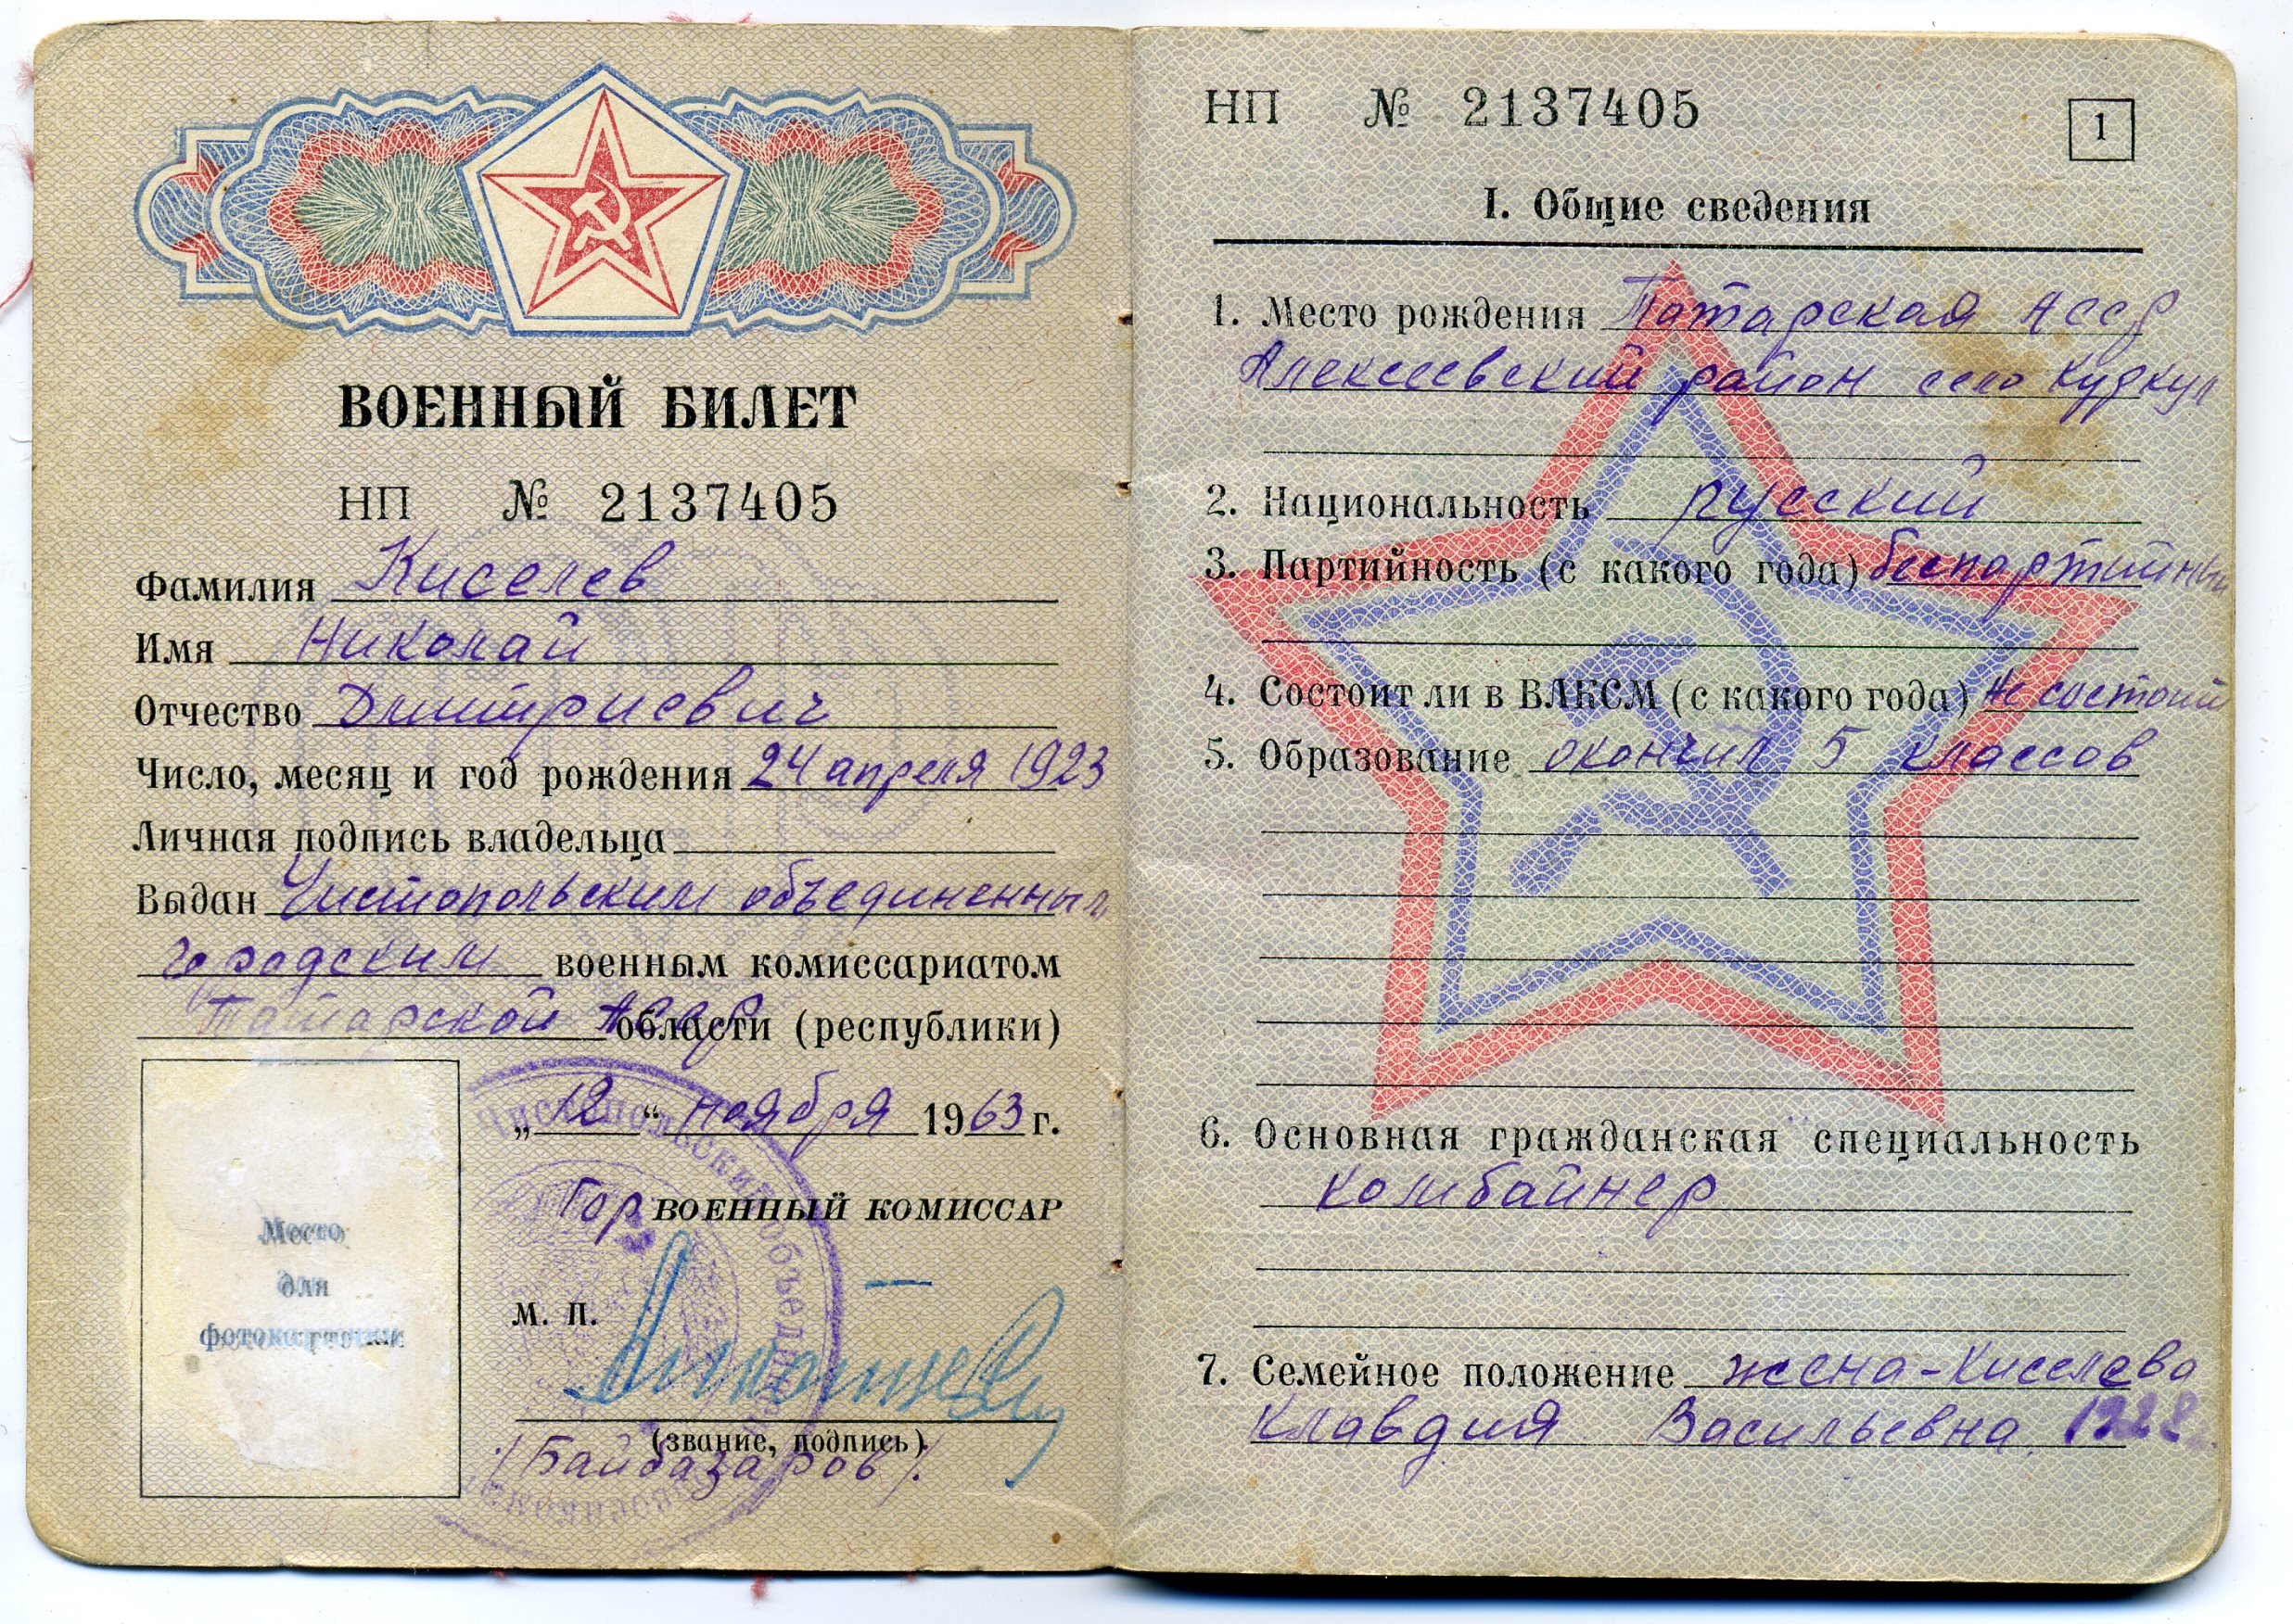 ВОЕННЫЙ БИЛЕТ
НП № 2137405
Фамилия Киселев
Имя Николай
Отчество Дмитриевич
Число, месяц и год рождения 24 апреля 1923
Личная подпись владельца
Выдан Чистопольским объединенным
городским военным комиссариатом
Татарской АССР области (республики)
„12“ ноября 1963 г.
Гор ВОЕННЫЙ КОМИССАР
М. П.
(звание, подпись)
/Байбазаров/
Место
для
фотокарточки
НП № 2137405
1
I. Общие сведения
1. Место рождения Татарская АССР
Алексеевский район село Куркуль
2. Национальность русский
3. Партийность (с какого года) беспартийный
4. Состоит ли в ВЛКСМ (с какого года) не состоит
5. Образование окончил 5 классов
6. Основная гражданская специальность
комбайнер
7. Семейное положение жена-Киселева
Клавдия Васильевна 1928